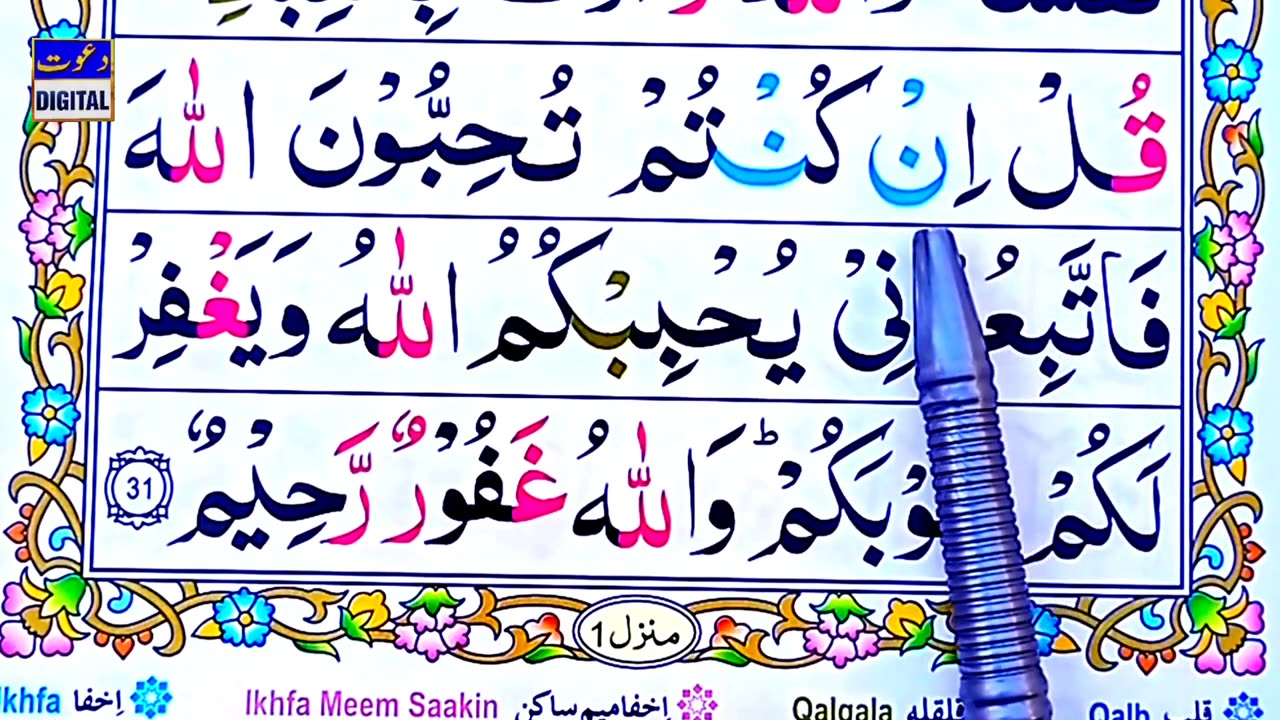 دعوت
DIGITAL
قُلْ اِنْ كُنْتُمْ تُحِبُّوْنَ اللّٰهَ
فَاتَّبِعُوْنِیْ یُحْبِبْكُمُ اللّٰهُ وَیَغْفِرْ
لَكُمْ وَاللّٰهُ غَفُوْرٌ رَّحِیْمٌ 31
منزل 1
Ikhfa اِخفا Ikhfa Meem Saakin اِخفا میم ساکن Qalqala قلقلہ Qalb قلب